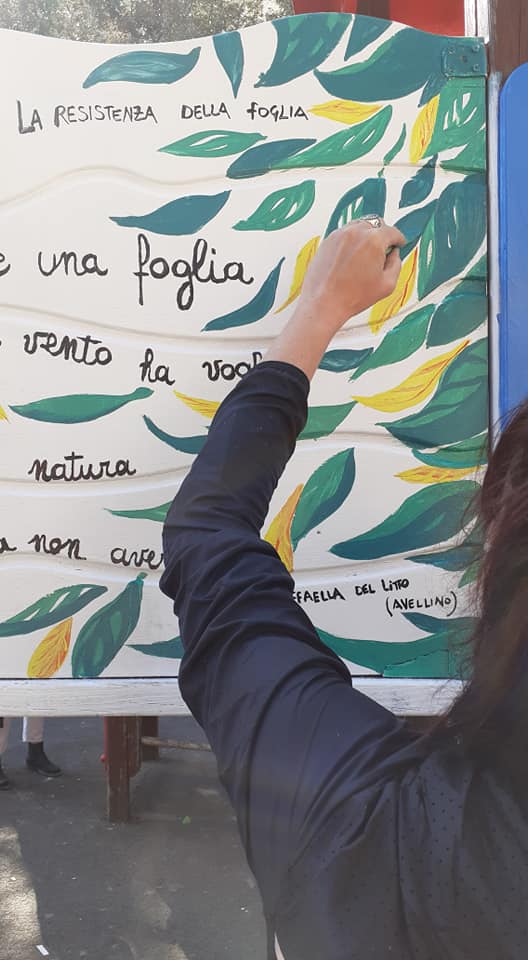 LA RESISTENZA DELLA FOGLIA
una foglia
vento ha
natura
non
DEL LITTO
(AVELLINO)